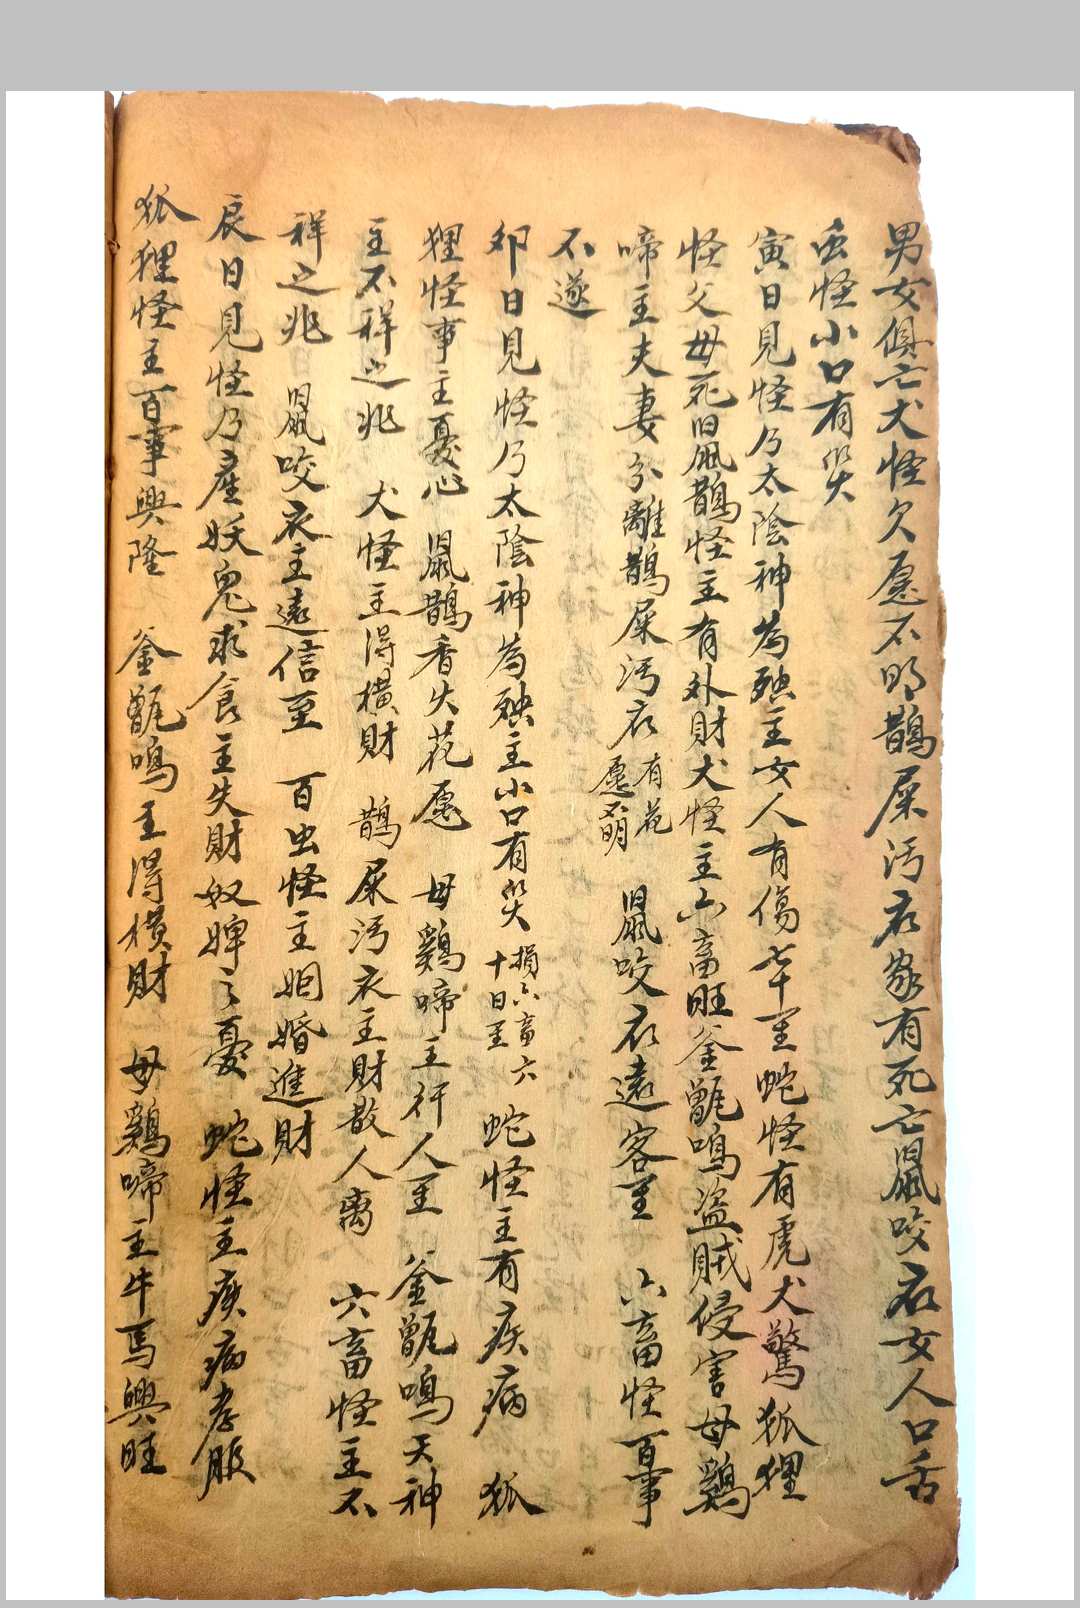 男女俱亡犬怪欠愿不明鵲屎汚衣家有死亡鼠咬衣女人口舌
虫怪小口有災
寅日見怪乃太陰神為殃主女人有傷七十里蛇怪有虎犬驚狐狸
怪父母死鼠鵲怪主有外財犬怪主六畜旺釜甑鳴盜賊侵害母鷄
啼主夫妻分離鵲屎汚衣有花愿不明 鼠咬衣遠客至 六畜怪百事
不遂
卯日見怪乃太陰神為殃主小口有災損六畜六十日至 蛇怪主有疾病 狐
狸怪事主憂心 鼠鵲香火花愿 母鷄啼主行人至 釜甑鳴天神
主不祥之兆 犬怪主得橫財 鵲屎汚衣主財散人离 六畜怪主不
祥之兆 鼠咬衣主遠信至 百虫怪主姻婚進財
辰日見怪乃產妖鬼求食主失財奴婢之憂 蛇怪主疾病孝服
狐狸怪主百事興隆 釜甑鳴主得橫財 母鷄啼主牛馬興旺